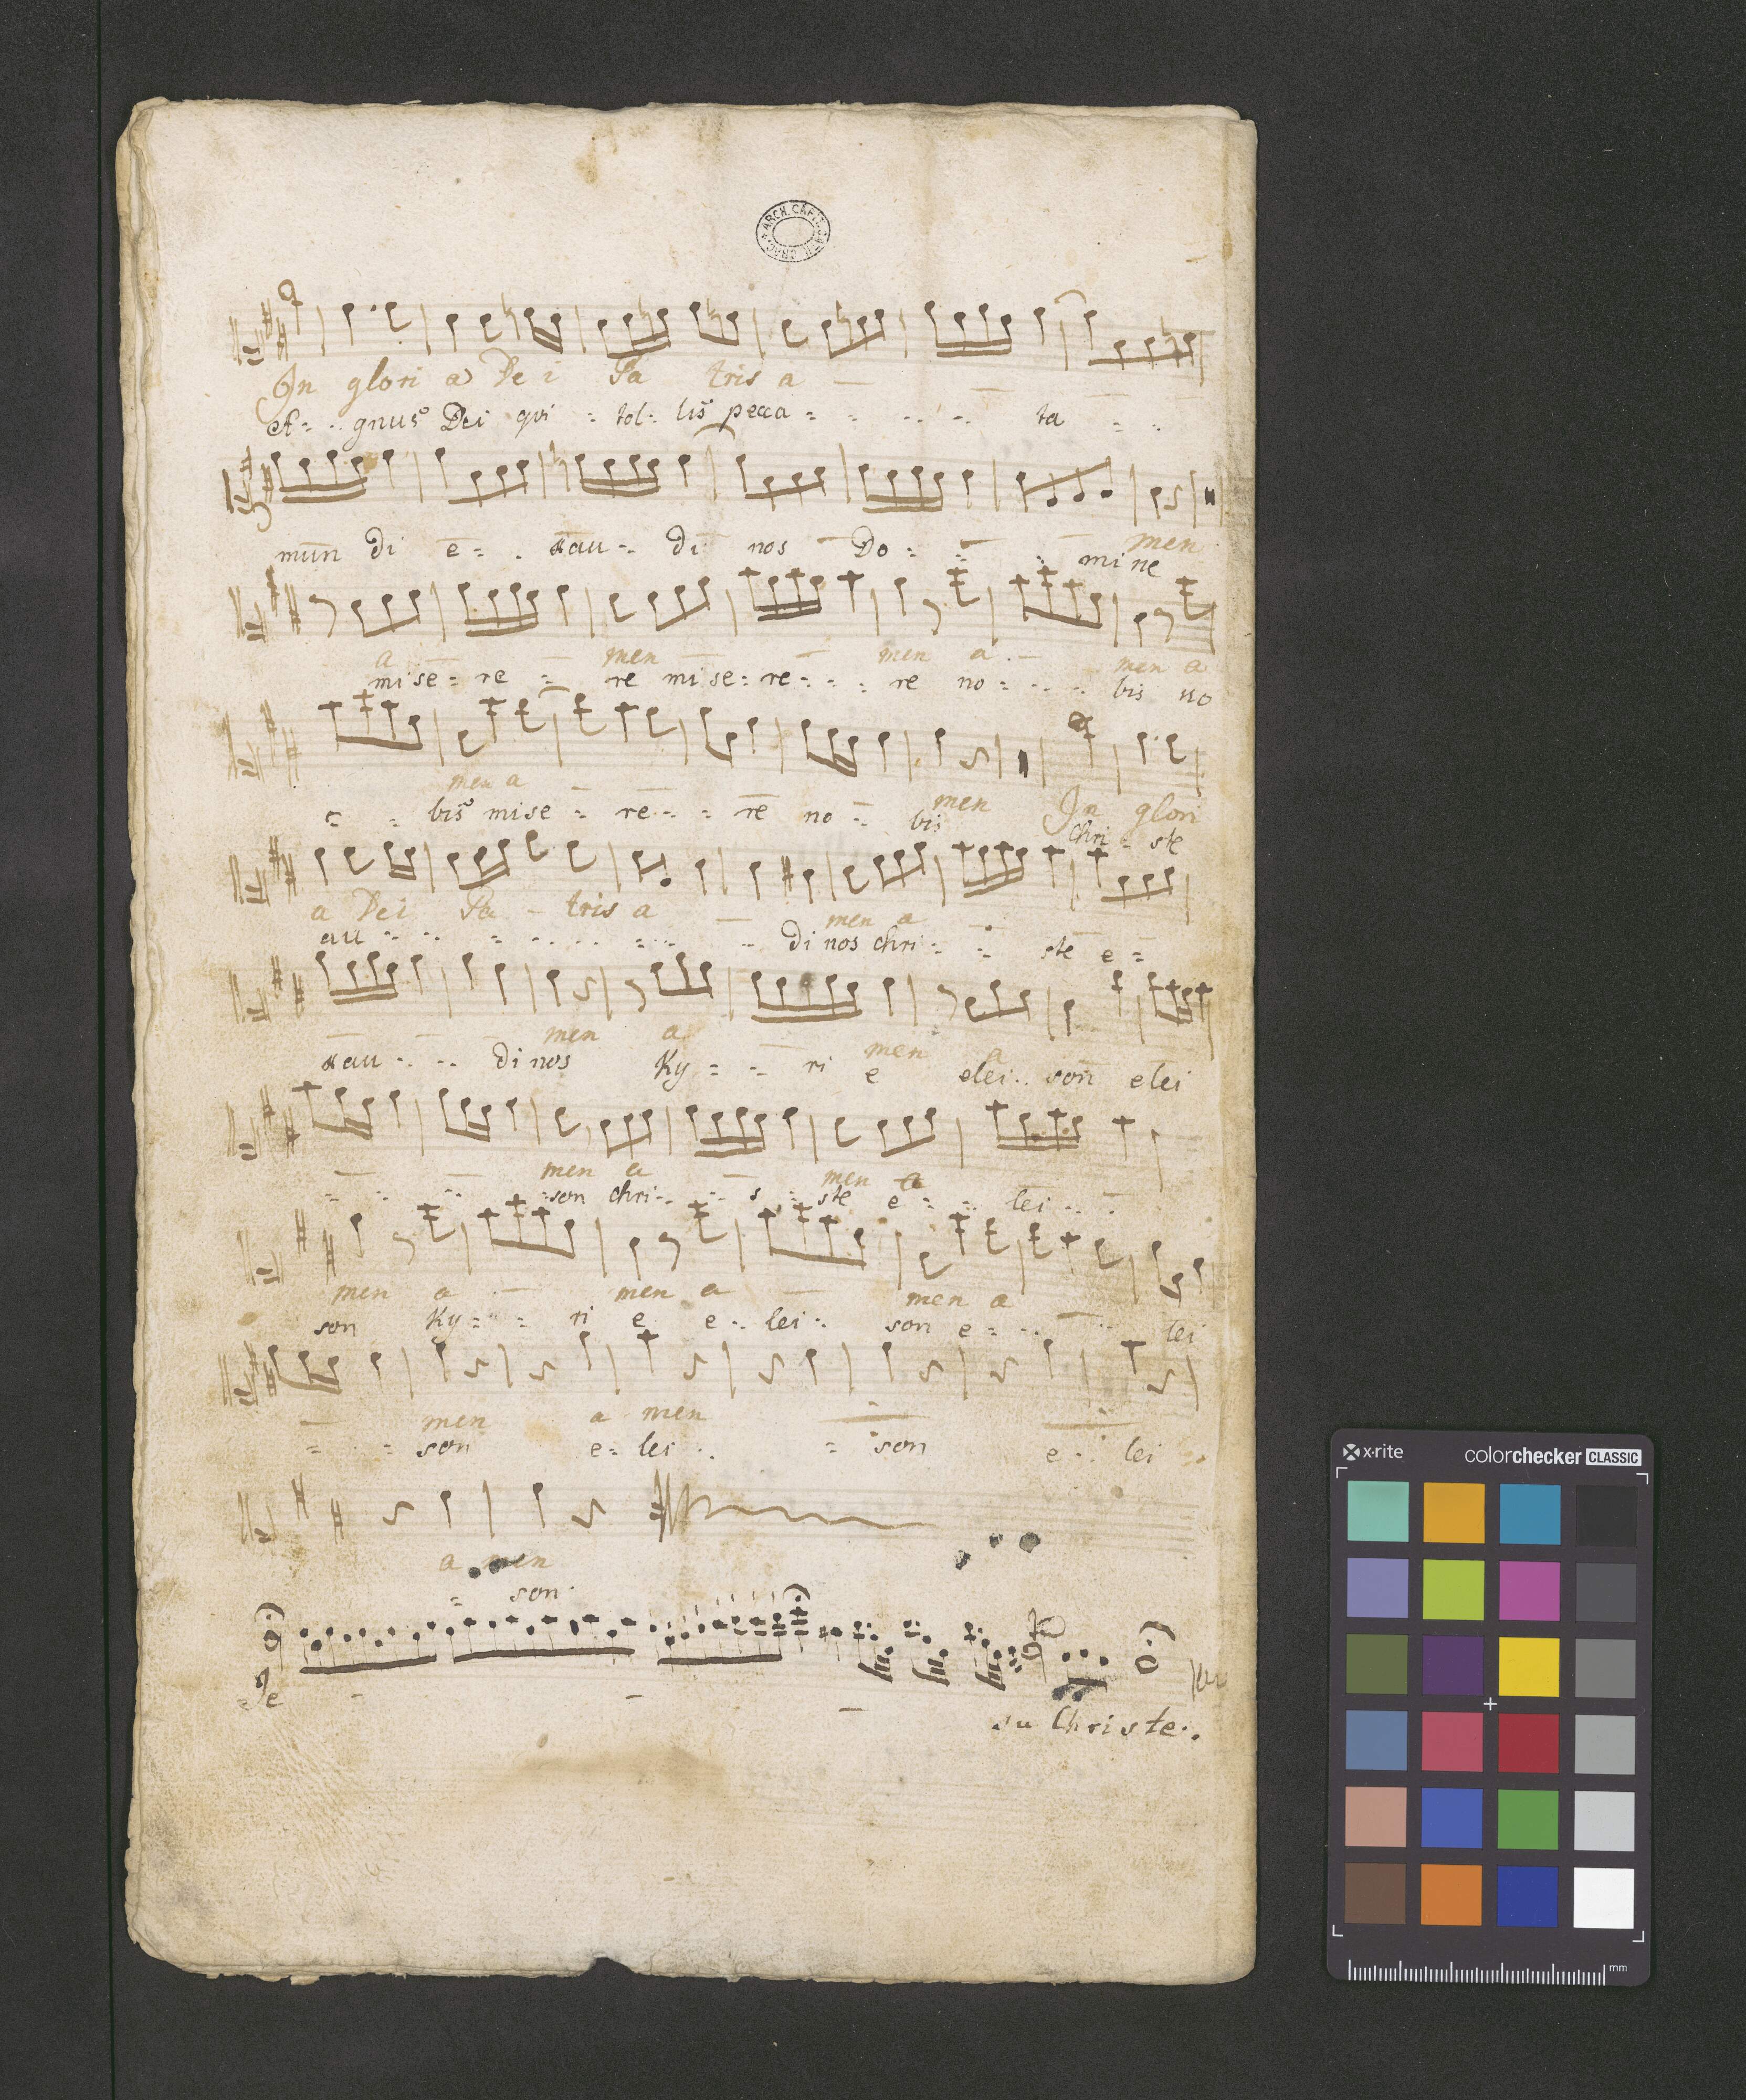 ARCH. CAPIT. CATH. CRAC.
In glori a Dei Pa tris a
A - gnus Dei qui tol lis pecca ta
men
mun di e - xau - di nos Do - mi ne
a men men a men a
mi se - re re mi se - re - re no - bis no
men a men In glori
bis mi se - re - re no - bis Chri - ste
a Dei Pa - tris a men a
au - di nos Chri - ste e -
men a men a
xau - di nos Ky - ri e elei - son elei
men a men a
son Chri - ste e - lei
men a men a men a
son Ky - ri e e - lei - son e - lei
men a men
son e - lei - son e - lei
a men
son
Je - su Christe.
x-rite colorchecker CLASSIC
mm